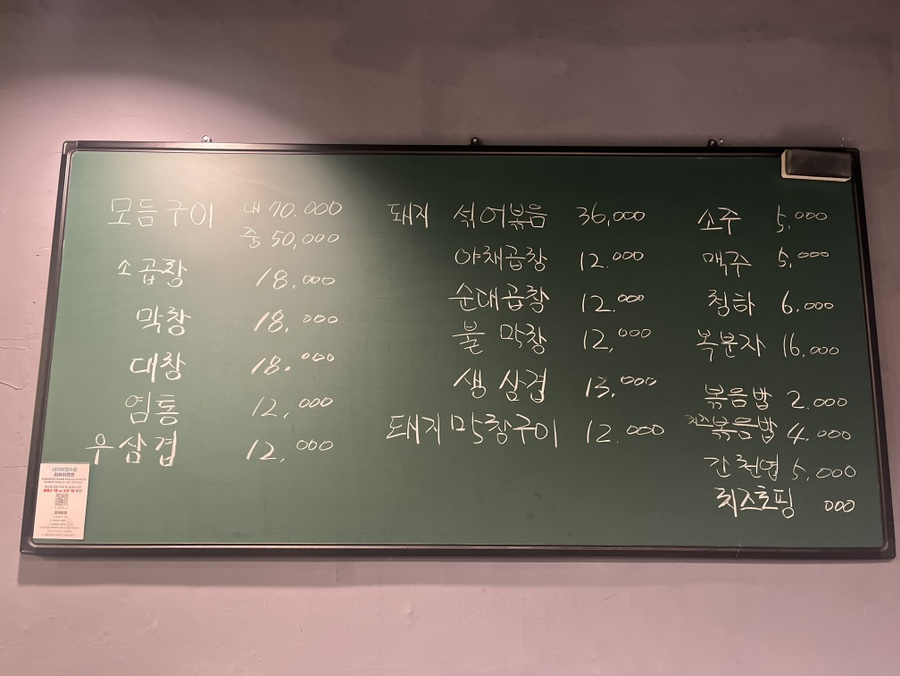 모듬구이 대 70,000
중 50,000
소곱창 18,000
막창 18.000
대창 18.000
염통 12,000
우삼겹 12,000
돼지 섞어볶음 36,000
야채곱창 12.000
순대곱창 12.000
불 막창 12,000
생 삼겹 13,000
돼지막창구이 12.000
소주 5,000
맥주 5,000
청하 6,000
복분자 16,000
볶음밥 2.000
치즈볶음밥 4,000
간 천엽 5,000
치즈토핑 000